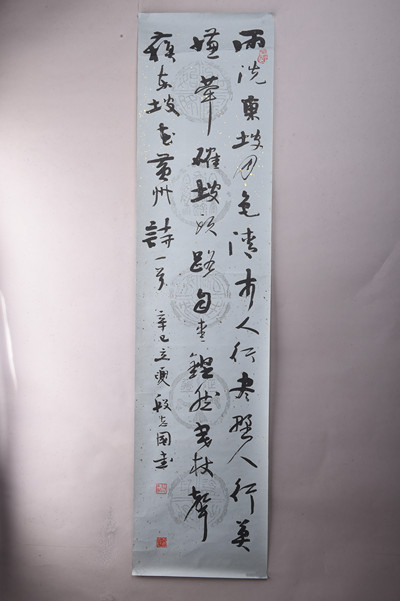 雨洗東坡月色清市人行盡野人行莫
嫌犖確坡頭路自愛鏗然曳杖聲
蘇东坡在黄州詩一首 辛巳立夏 殷志國書